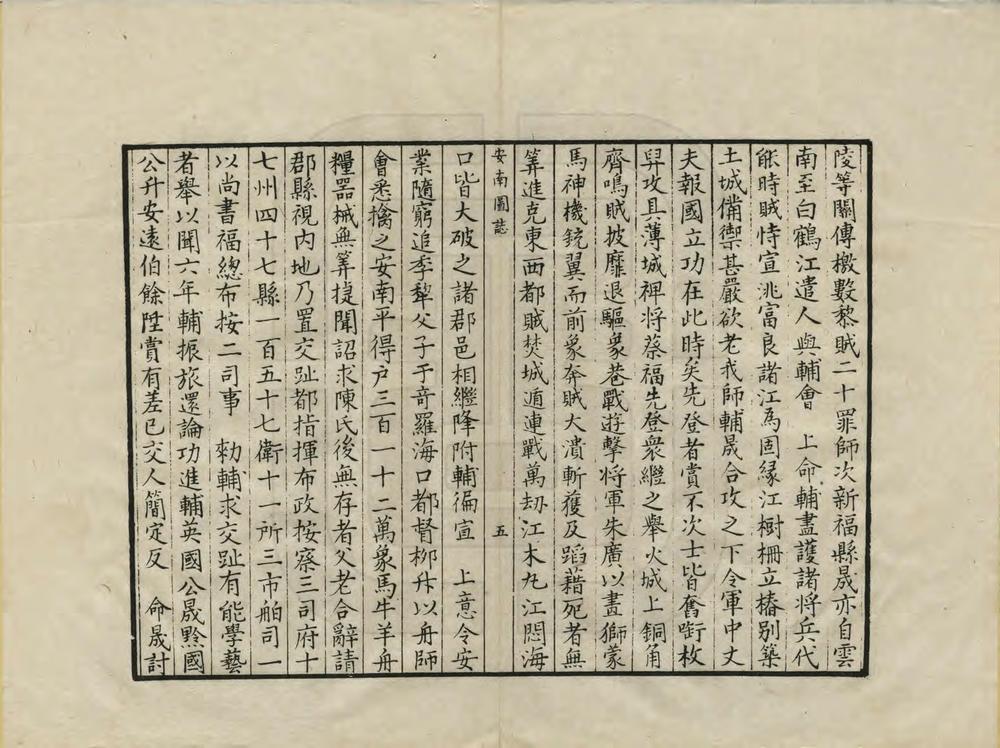 陵等關傳檄數黎賊二十罪師次新福縣晟亦自雲
南至白鶴江遣人與輔會　上命輔盡護諸將兵代
能時賊恃宣洮富良諸江為固緣江樹柵立樁別築
土城備禦甚嚴欲老我師輔晟合攻之下令軍中丈
夫報國立功在此時矣先登者賞不次士皆奮啣枚
舁攻具薄城裨將蔡福先登衆繼之舉火城上銅角
齊鳴賊披靡退驅象巷戰遊擊將軍朱廣以畫獅蒙
馬神機銃翼而前象奔賊大潰斬獲及蹈藉死者無
筭進克東西都賊焚城遁連戰萬劫江木丸江悶海
安南圖誌　五
口皆大破之諸郡邑相繼降附輔徧宣　上意令安
業隨窮追季犂父子于竒羅海口都督柳升以舟師
會悉擒之安南平得户三百一十二萬象馬牛羊舟
糧器械無筭捷聞詔求陳氏後無存者父老合辭請
郡縣視内地乃置交趾都指揮布政按察三司府十
七州四十七縣一百五十七衛十一所三市舶司一
以尚書福總布按二司事　勑輔求交趾有能學藝
者舉以聞六年輔振旅還論功進輔英國公晟黔國
公升安遠伯餘陞賞有差已交人簡定反　命晟討